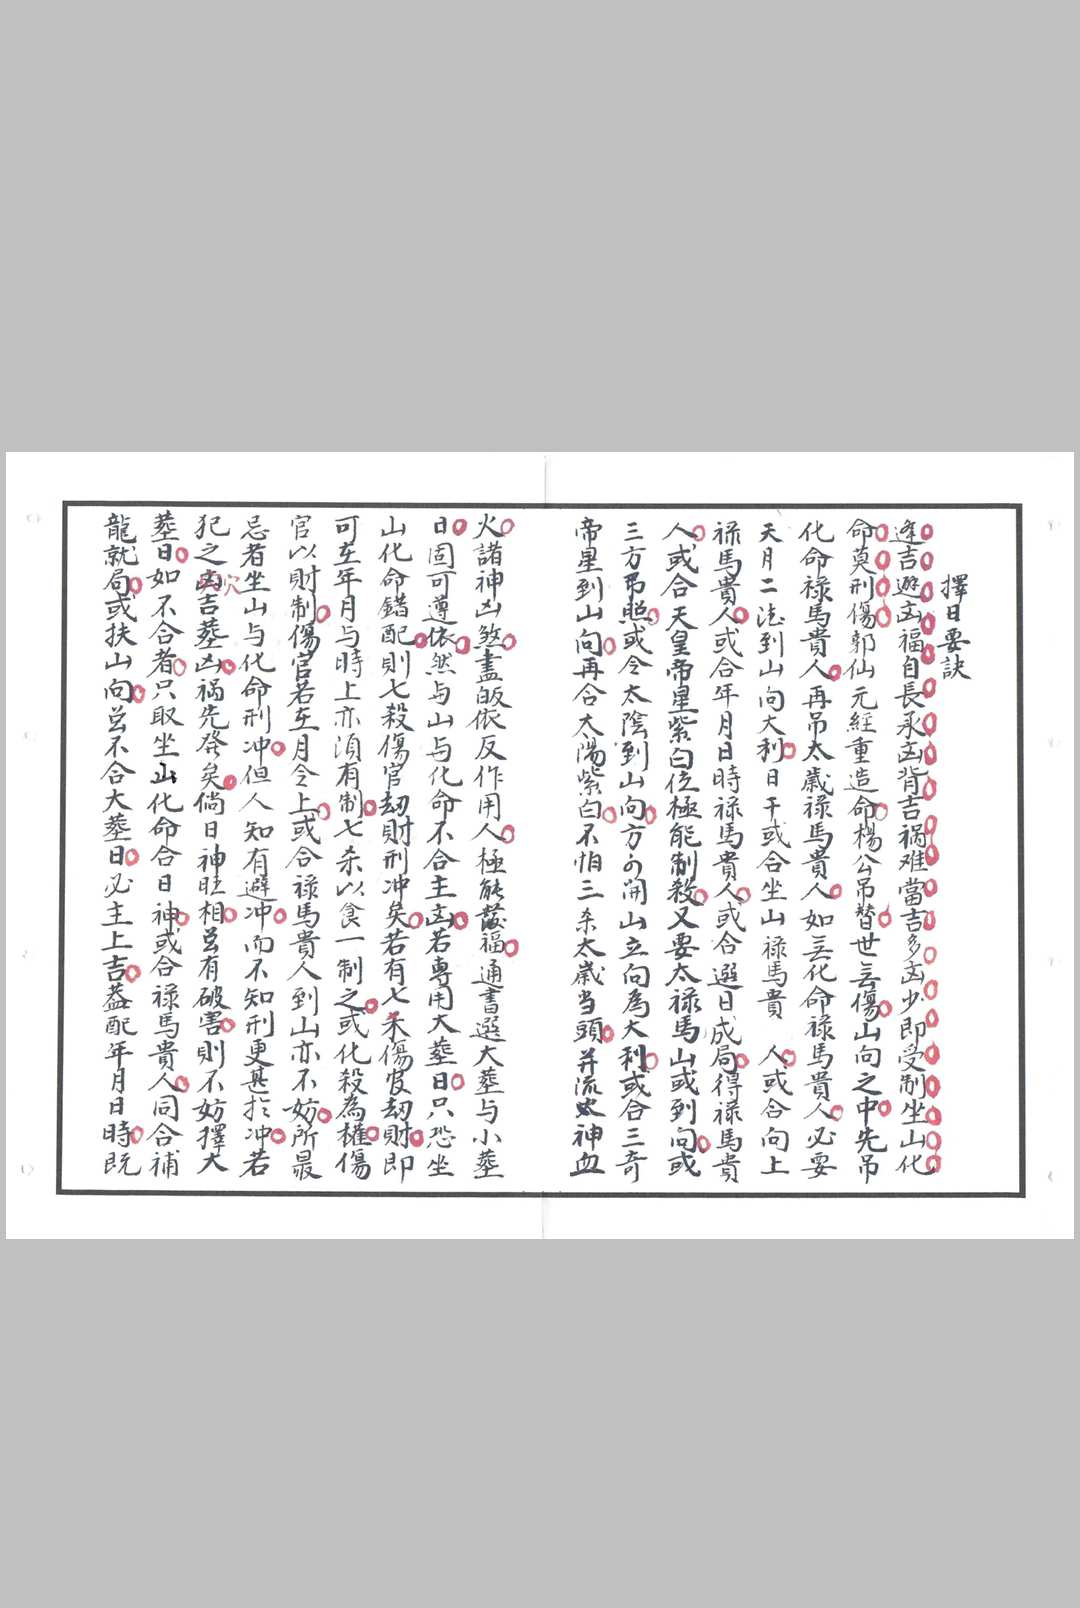 擇日要訣
逢吉避凶福自長承凶背吉禍难當吉多凶少即受制坐山化
命莫刑傷郭仙元經重造命楊公吊替世无傷山向之中先吊
化命禄馬貴人再吊太歲禄馬貴人如无化命禄馬貴人必要
天月二德到山向大利日干或合坐山禄馬貴人或合向上
禄馬貴人或合年月日時禄馬貴人或合選日成局得禄馬貴
人或合天皇帝星紫白位極能制殺又要太禄馬山或到向或
三方吊照或令太陰到山向方可開山立向為大利或合三奇
帝星到山向再合太陽紫白不怕三杀太歲当頭并流太神血
火諸神凶煞盡皈依反作用人極能發福通書選大葬与小葬
日固可遵依然与山与化命不合主凶若專用大葬日只恐坐
山化命錯配則七殺傷官劫財刑冲矣若有七杀傷官劫財即
可在年月与時上亦須有制七杀以食一制之或化殺為權傷
官以財制傷官若在月令上或合禄馬貴人到山亦不妨所最
忌者坐山与化命刑冲但人知有避冲而不知刑更甚於冲若
犯之凶次吉葬凶祸先發矣倘日神旺相岂有破害則不妨擇大
葬日如不合者只取坐山化命合日神或合禄馬貴人同合補
龍就局或扶山向岂不合大葬日必主上吉葢配年月日時既